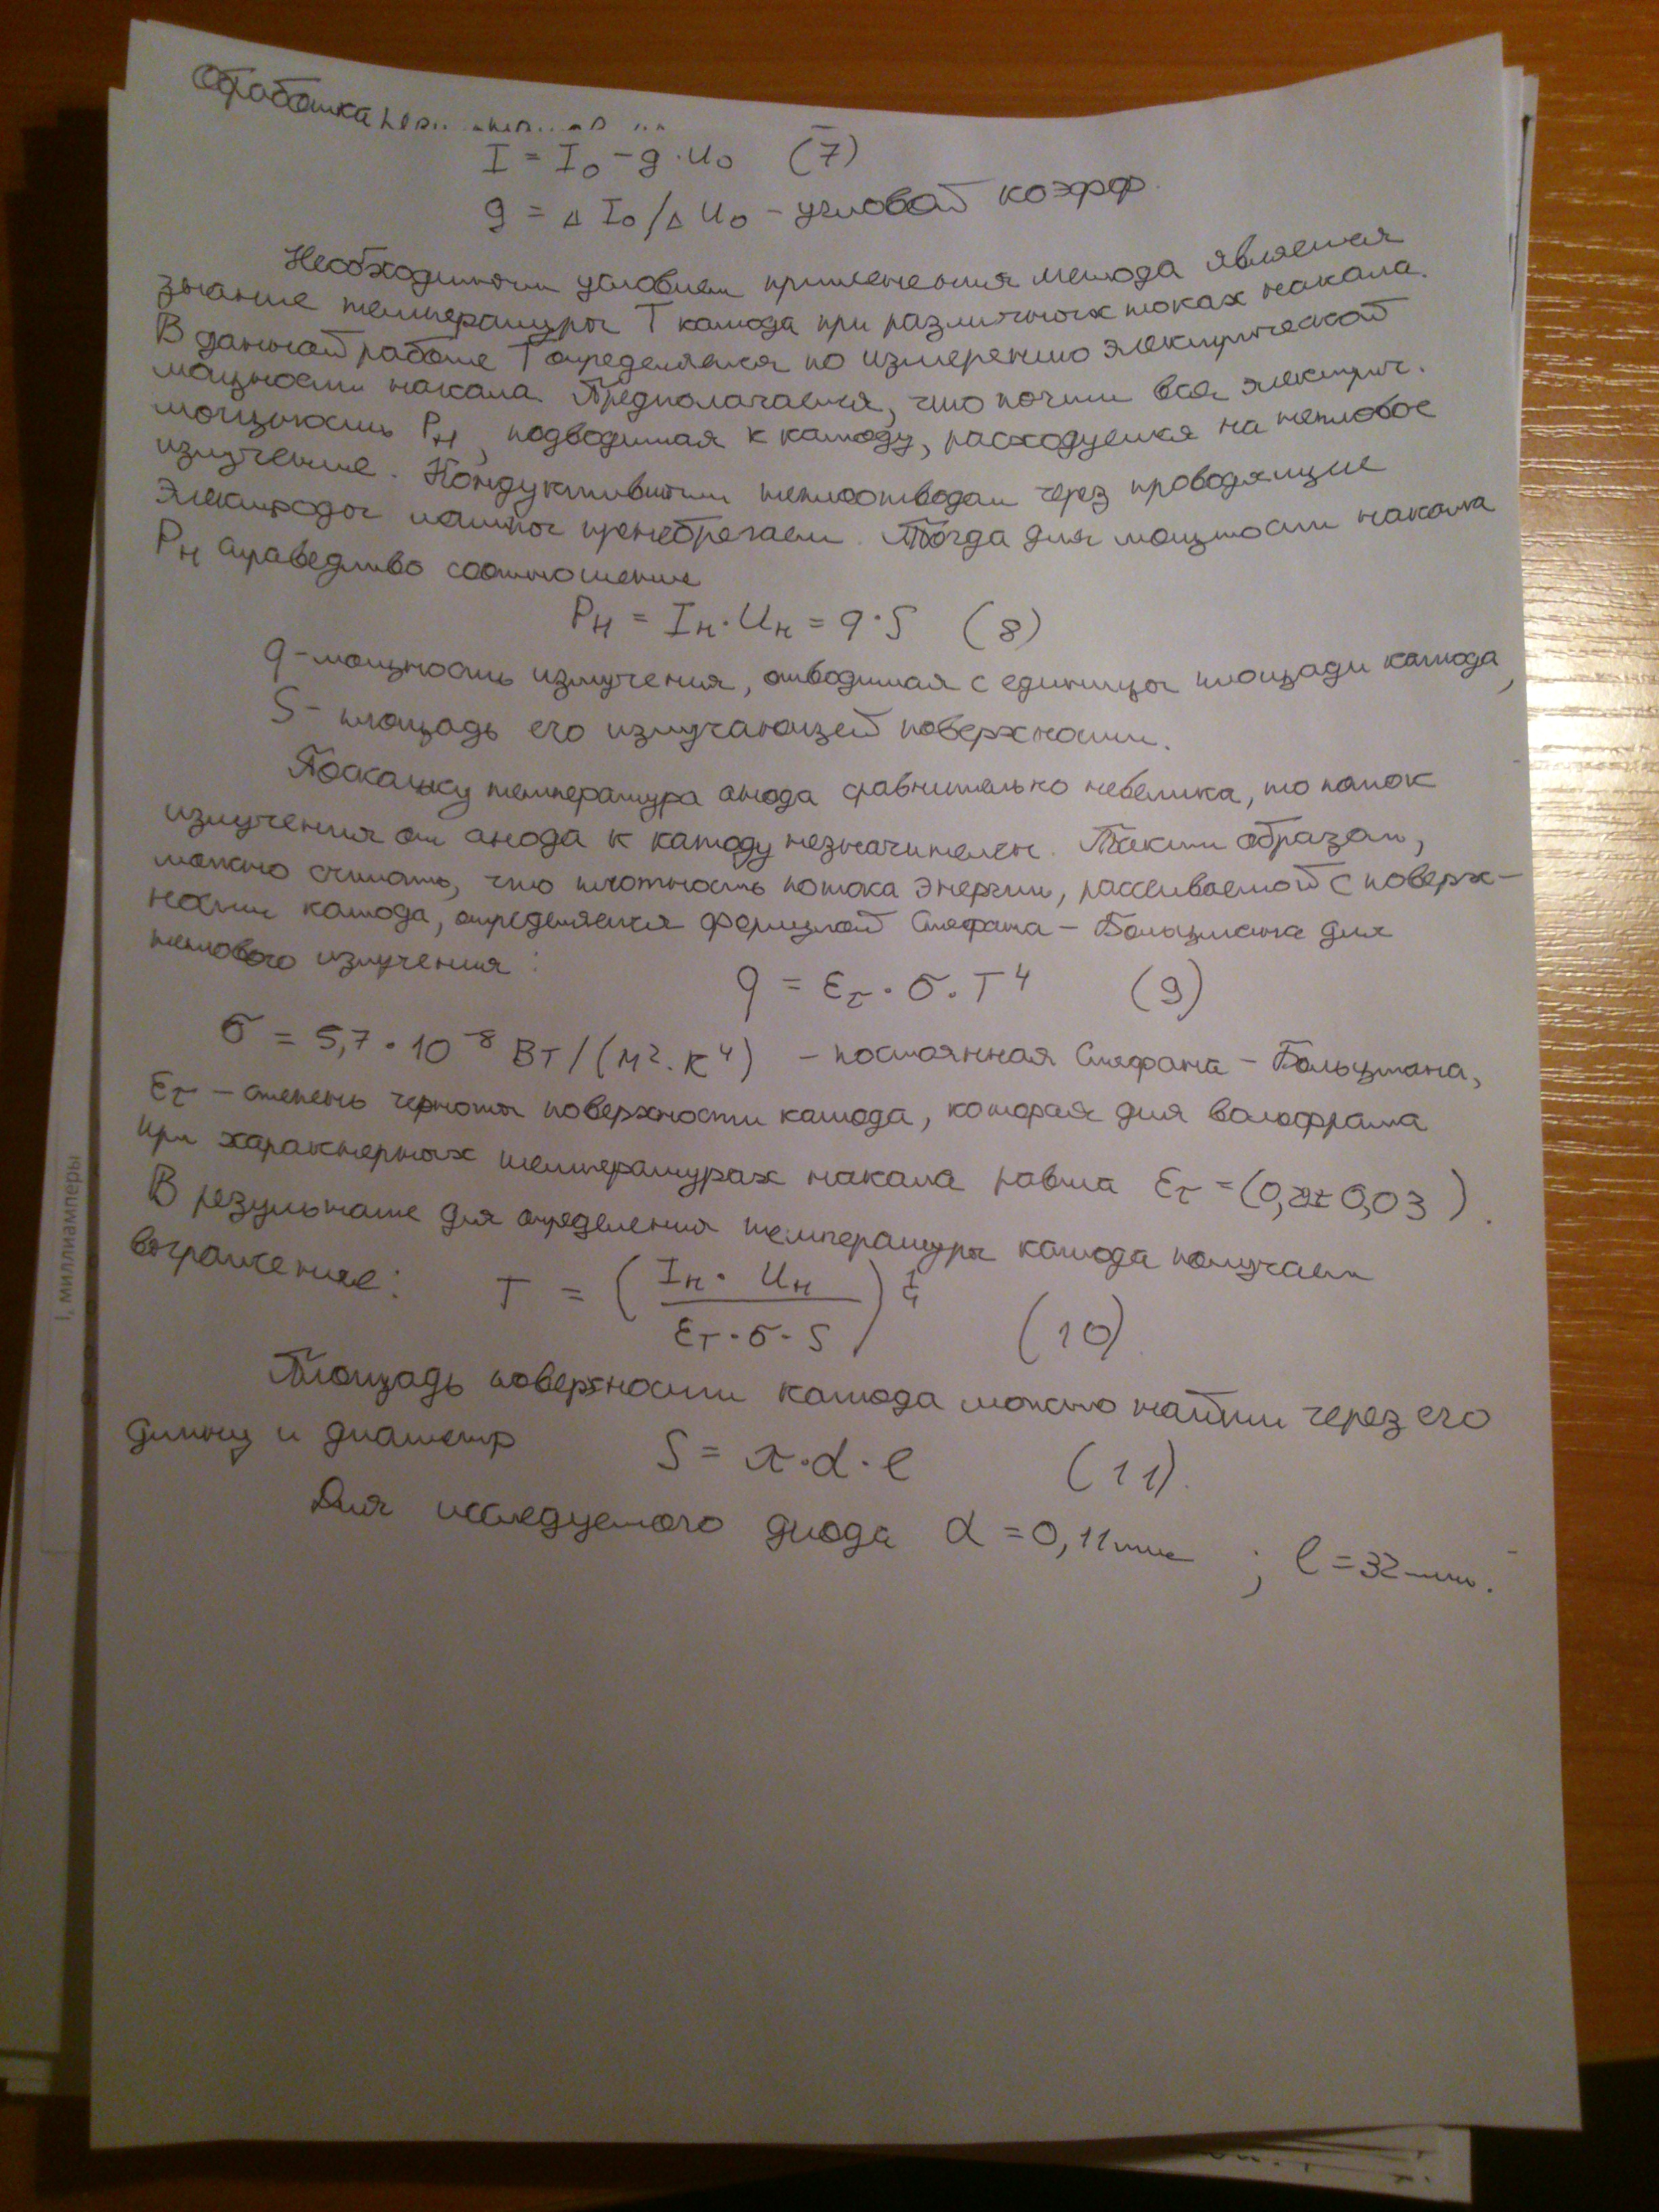 Обработка
I = I₀ - g · U₀ (7)
g = Δ I₀ / Δ U₀ - угловой коэфф.
Необходимым условием применения метода является
знание температуры T катода при различных токах накала.
В данной работе T определяется по измерению электрической
мощности накала. Предполагается, что почти вся электрич.
мощность Pн, подводимая к катоду, расходуется на тепловое
излучение. Кондуктивным теплоотводом через проводящие
электроды лампы пренебрегаем. Тогда для мощности накала
Pн справедливо соотношение
Pн = Iн · Uн = q · S (8)
q - мощность излучения, отводимая с единицы площади катода,
S - площадь его излучающей поверхности.
Поскольку температура анода сравнительно невелика, то поток
излучения от анода к катоду незначителен. Таким образом,
можно считать, что плотность потока энергии, рассеиваемой с поверх-
ности катода, определяется формулой Стефана - Больцмана для
теплового излучения:
q = εт · σ · T⁴ (9)
σ = 5,7 · 10⁻⁸ Вт/(м² · К⁴) - постоянная Стефана - Больцмана,
εт - степень черноты поверхности катода, которая для вольфрама
при характерных температурах накала равна εт = (0,2± 0,03).
В результате для определения температуры катода получаем
выражение: T = (Iн · Uн / εт · σ · S)^1/4 (10)
Площадь поверхности катода можно найти через его
длину и диаметр S = π · d · l (11).
Для исследуемого диода d = 0,11мм ; l = 32мм.
I, миллиамперы